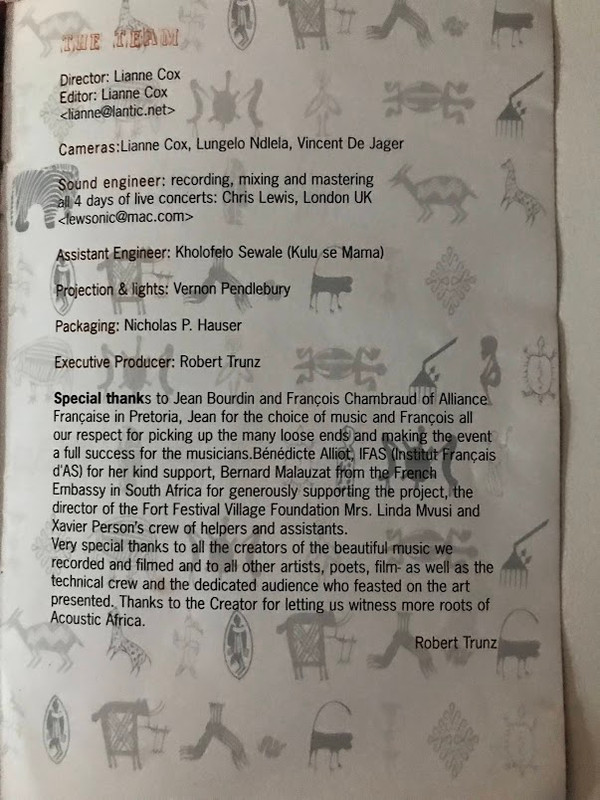 THE TEAM
Director: Lianne Cox
Editor: Lianne Cox
<lianne@lantic.net>
Cameras:Lianne Cox, Lungelo Ndlela, Vincent De Jager
Sound engineer: recording, mixing and mastering
all 4 days of live concerts: Chris Lewis, London UK
<lewsonic@mac.com>
Assistant Engineer: Kholofelo Sewale (Kulu se Mama)
Projection & lights: Vernon Pendlebury
Packaging: Nicholas P. Hauser
Executive Producer: Robert Trunz
Special thanks to Jean Bourdin and François Chambraud of Alliance
Française in Pretoria, Jean for the choice of music and François all
our respect for picking up the many loose ends and making the event
a full success for the musicians.Bénédicte Alliot, IFAS (Institut Français
d'AS) for her kind support, Bernard Malauzat from the French
Embassy in South Africa for generously supporting the project, the
director of the Fort Festival Village Foundation Mrs. Linda Mvusi and
Xavier Person's crew of helpers and assistants.
Very special thanks to all the creators of the beautiful music we
recorded and filmed and to all other artists, poets, film- as well as the
technical crew and the dedicated audience who feasted on the art
presented. Thanks to the Creator for letting us witness more roots of
Acoustic Africa.
Robert Trunz